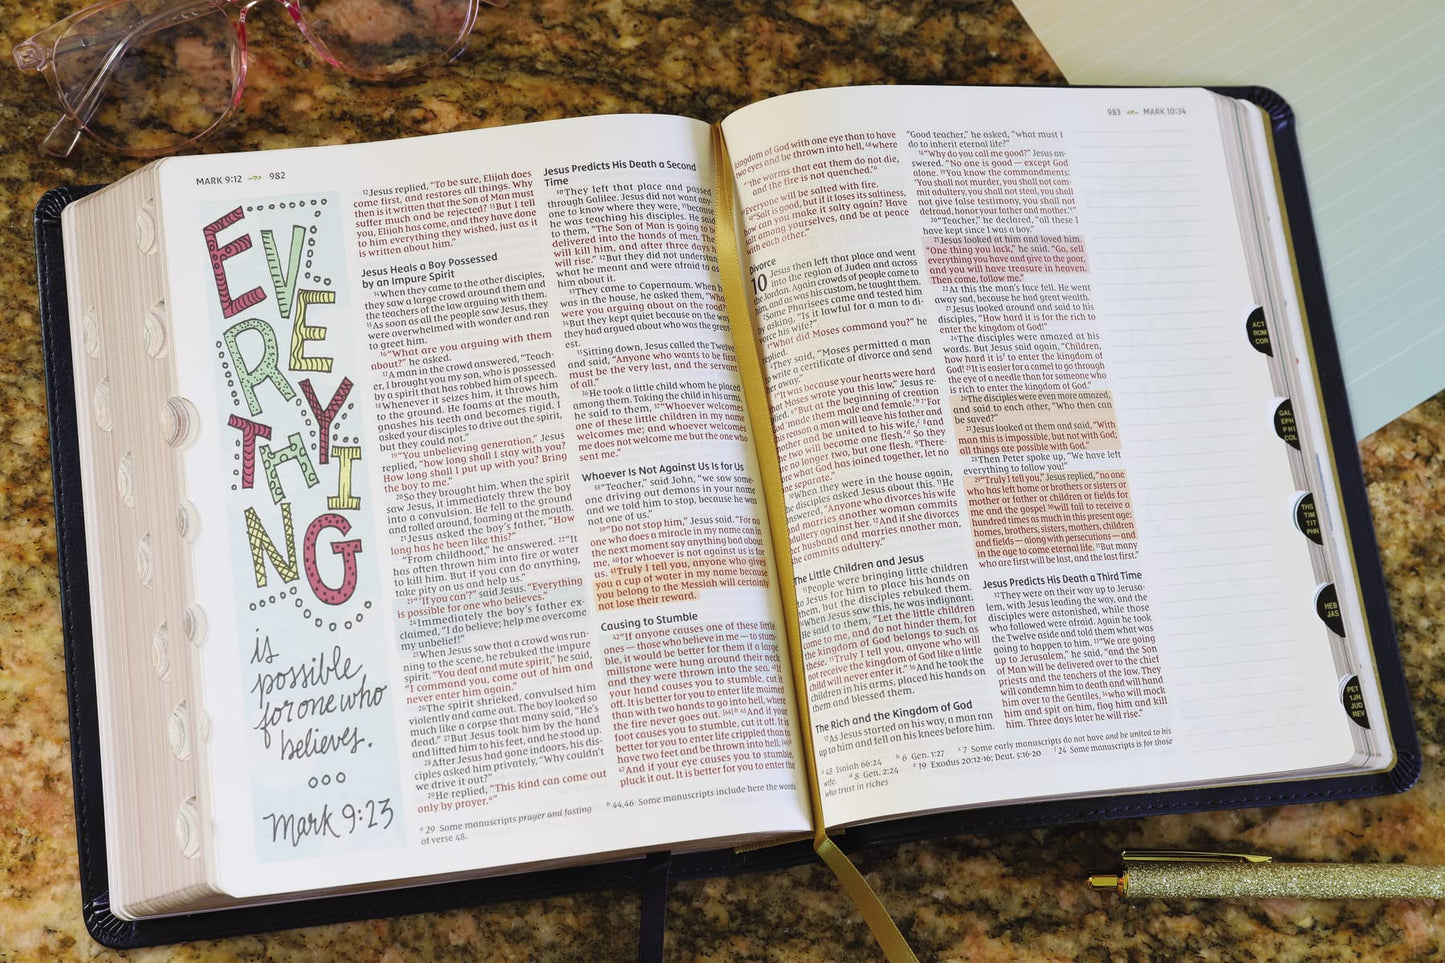 MARK 9:12
982
EVERYTHING
is
possible
for one who
believes.
Mark 9:23
12 Jesus replied, “To be sure, Elijah does
come first, and restores all things. Why
then is it written that the Son of Man must
suffer much and be rejected? 13 But I tell
you, Elijah has come, and they have done
to him everything they wished, just as it
is written about him.”
Jesus Heals a Boy Possessed
by an Impure Spirit
14 When they came to the other disciples,
they saw a large crowd around them and
the teachers of the law arguing with them.
15 As soon as all the people saw Jesus, they
were overwhelmed with wonder and ran
to greet him.
16 “What are you arguing with them
about?” he asked.
17 A man in the crowd answered, “Teach-
er, I brought you my son, who is possessed
by a spirit that has robbed him of speech.
18 Whenever it seizes him, it throws him
to the ground. He foams at the mouth,
gnashes his teeth and becomes rigid. I
asked your disciples to drive out the spirit,
but they could not.”
19 “You unbelieving generation,” Jesus
replied, “how long shall I stay with you?
How long shall I put up with you? Bring
the boy to me.”
20 So they brought him. When the spirit
saw Jesus, it immediately threw the boy
into a convulsion. He fell to the ground
and rolled around, foaming at the mouth.
21 Jesus asked the boy’s father, “How
long has he been like this?”
“From childhood,” he answered. 22 “It
has often thrown him into fire or water
to kill him. But if you can do anything,
take pity on us and help us.”
23 “ ‘If you can’?” said Jesus. “Everything
is possible for one who believes.”
24 Immediately the boy’s father ex-
claimed, “I do believe; help me overcome
my unbelief!”
25 When Jesus saw that a crowd was run-
ning to the scene, he rebuked the impure
spirit. “You deaf and mute spirit,” he said,
“I command you, come out of him and
never enter him again.”
26 The spirit shrieked, convulsed him
violently and came out. The boy looked so
much like a corpse that many said, “He’s
dead.” 27 But Jesus took him by the hand
and lifted him to his feet, and he stood up.
28 After Jesus had gone indoors, his dis-
ciples asked him privately, “Why couldn’t
we drive it out?”
29 He replied, “This kind can come out
only by prayer.a”
Jesus Predicts His Death a Second
Time
30 They left that place and passed
through Galilee. Jesus did not want any-
one to know where they were, 31 because
he was teaching his disciples. He said
to them, “The Son of Man is going to be
delivered into the hands of men. They
will kill him, and after three days he
will rise.” 32 But they did not understand
what he meant and were afraid to ask
him about it.
33 They came to Capernaum. When he
was in the house, he asked them, “What
were you arguing about on the road?”
34 But they kept quiet because on the way
they had argued about who was the great-
est.
35 Sitting down, Jesus called the Twelve
and said, “Anyone who wants to be first
must be the very last, and the servant
of all.”
36 He took a little child whom he placed
among them. Taking the child in his arms,
he said to them, 37 “Whoever welcomes
one of these little children in my name
welcomes me; and whoever welcomes
me does not welcome me but the one who
sent me.”
Whoever Is Not Against Us Is for Us
38 “Teacher,” said John, “we saw some-
one driving out demons in your name
and we told him to stop, because he was
not one of us.”
39 “Do not stop him,” Jesus said. “For no
one who does a miracle in my name can in
the next moment say anything bad about
me, 40 for whoever is not against us is for
us. 41 Truly I tell you, anyone who gives
you a cup of water in my name because
you belong to the Messiah will certainly
not lose their reward.
Causing to Stumble
42 “If anyone causes one of these little
ones — those who believe in me — to stum-
ble, it would be better for them if a large
millstone were hung around their neck
and they were thrown into the sea. 43 If
your hand causes you to stumble, cut it
off. It is better for you to enter life maimed
than with two hands to go into hell, where
the fire never goes out. [44] b 45 And if your
foot causes you to stumble, cut it off. It is
better for you to enter life crippled than to
have two feet and be thrown into hell. [46] b
47 And if your eye causes you to stumble,
pluck it out. It is better for you to enter the
a 29 Some manuscripts prayer and fasting
b 44,46 Some manuscripts include here the words
of verse 48.
983
MARK 10:34
kingdom of God with one eye than to have
two eyes and be thrown into hell, 48 where
“ ‘the worms that eat them do not die,
and the fire is not quenched.’a
49 Everyone will be salted with fire.
50 “Salt is good, but if it loses its saltiness,
how can you make it salty again? Have
salt among yourselves, and be at peace
with each other.”
Divorce
10 Jesus then left that place and went
into the region of Judea and across
the Jordan. Again crowds of people came to
him, and as was his custom, he taught them.
2 Some Pharisees came and tested him
by asking, “Is it lawful for a man to di-
vorce his wife?”
3 “What did Moses command you?” he
replied.
4 They said, “Moses permitted a man
to write a certificate of divorce and send
her away.”
5 “It was because your hearts were hard
that Moses wrote you this law,” Jesus re-
plied. 6 “But at the beginning of creation
God ‘made them male and female.’b 7 ‘For
this reason a man will leave his father and
mother and be united to his wife,c 8 and
the two will become one flesh.’d So they
are no longer two, but one flesh. 9 There-
fore what God has joined together, let no
one separate.”
10 When they were in the house again,
the disciples asked Jesus about this. 11 He
answered, “Anyone who divorces his wife
and marries another woman commits
adultery against her. 12 And if she divorces
her husband and marries another man,
she commits adultery.”
The Little Children and Jesus
13 People were bringing little children
to Jesus for him to place his hands on
them, but the disciples rebuked them.
14 When Jesus saw this, he was indignant.
He said to them, “Let the little children
come to me, and do not hinder them, for
the kingdom of God belongs to such as
these. 15 Truly I tell you, anyone who will
not receive the kingdom of God like a little
child will never enter it.” 16 And he took the
children in his arms, placed his hands on
them and blessed them.
The Rich and the Kingdom of God
17 As Jesus started on his way, a man ran
up to him and fell on his knees before him.
“Good teacher,” he asked, “what must I
do to inherit eternal life?”
18 “Why do you call me good?” Jesus an-
swered. “No one is good — except God
alone. 19 You know the commandments:
‘You shall not murder, you shall not com-
mit adultery, you shall not steal, you shall
not give false testimony, you shall not
defraud, honor your father and mother.’e”
20 “Teacher,” he declared, “all these I
have kept since I was a boy.”
21 Jesus looked at him and loved him.
“One thing you lack,” he said. “Go, sell
everything you have and give to the poor,
and you will have treasure in heaven.
Then come, follow me.”
22 At this the man’s face fell. He went
away sad, because he had great wealth.
23 Jesus looked around and said to his
disciples, “How hard it is for the rich to
enter the kingdom of God!”
24 The disciples were amazed at his
words. But Jesus said again, “Children,
how hard it isf to enter the kingdom of
God! 25 It is easier for a camel to go through
the eye of a needle than for someone who
is rich to enter the kingdom of God.”
26 The disciples were even more amazed,
and said to each other, “Who then can
be saved?”
27 Jesus looked at them and said, “With
man this is impossible, but not with God;
all things are possible with God.”
28 Then Peter spoke up, “We have left
everything to follow you!”
29 “Truly I tell you,” Jesus replied, “no one
who has left home or brothers or sisters or
mother or father or children or fields for
me and the gospel 30 will fail to receive a
hundred times as much in this present age:
homes, brothers, sisters, mothers, children
and fields — along with persecutions — and
in the age to come eternal life. 31 But many
who are first will be last, and the last first.”
Jesus Predicts His Death a Third Time
32 They were on their way up to Jerusa-
lem, with Jesus leading the way, and the
disciples were astonished, while those
who followed were afraid. Again he took
the Twelve aside and told them what was
going to happen to him. 33 “We are going
up to Jerusalem,” he said, “and the Son
of Man will be delivered over to the chief
priests and the teachers of the law. They
will condemn him to death and will hand
him over to the Gentiles, 34 who will mock
him and spit on him, flog him and kill
him. Three days later he will rise.”
a 48 Isaiah 66:24
b 6 Gen. 1:27
c 7 Some early manuscripts do not have and be united to his
wife.
d 8 Gen. 2:24
e 19 Exodus 20:12-16; Deut. 5:16-20
f 24 Some manuscripts is for those
who trust in riches
ACT
ROM
COR
GAL
EPH
PHI
COL
THS
TIM
TIT
PHN
HEB
JAS
PET
1JN
JUD
REV